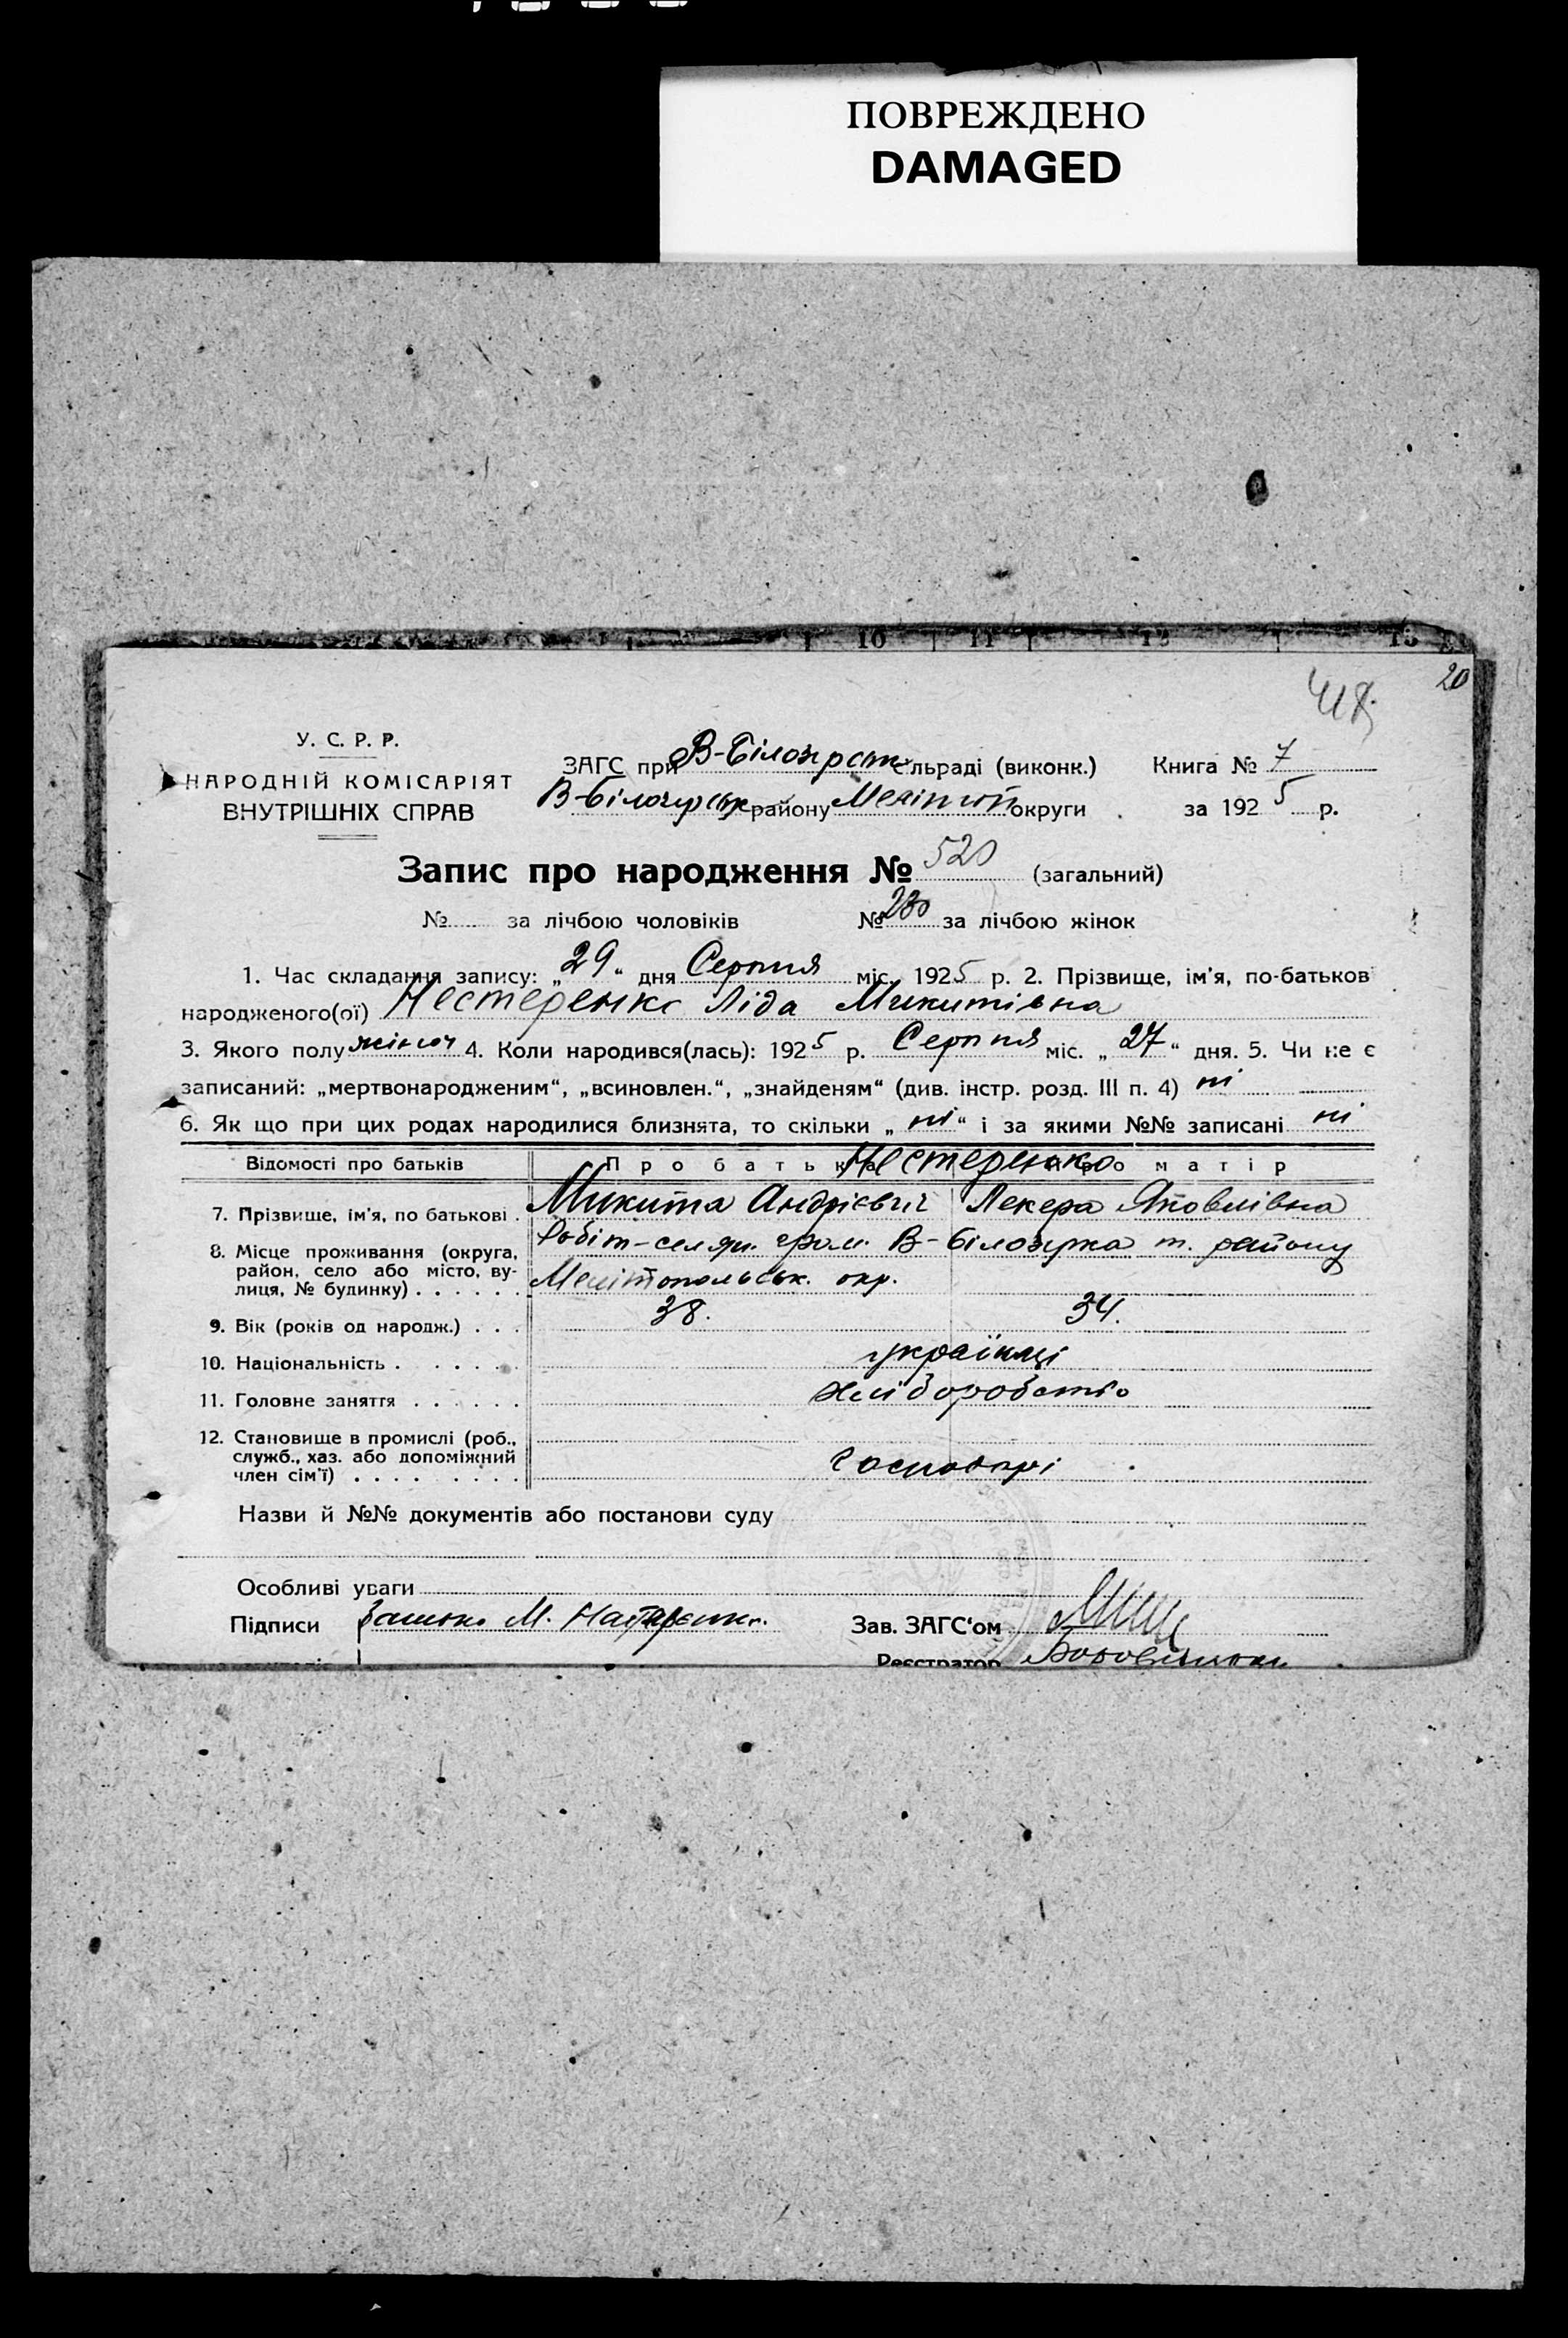 ПОВРЕЖДЕНО
DAMAGED
10 11 12 13
20
418
У. С. Р. Р.
НАРОДНІЙ КОМІСАРІЯТ
ВНУТРІШНІХ СПРАВ
ЗАГС при В-Білозірськ сельраді (виконк.) Книга № 7
В-Білозірськ району Мелітоп округи за 1925 р.
Запис про народження № 520 (загальний)
№ за лічбою чоловіків № 230 за лічбою жінок
1. Час складання запису: „29“ дня Серпня міс. 1925 р. 2. Прізвище, ім'я, по-батьков
народженого(ої) Нестеренко Ліда Микитівна
3. Якого полу жіноч 4. Коли народився(лась): 1925 р. Серпня міс. „27“ дня. 5. Чи не є
записаний: „мертвонародженим“, „всиновлен.“, „знайденям“ (див. інстр. розд. III п. 4) ні
6. Як що при цих родах народилися близнята, то скільки „ні“ і за якими №№ записані ні
Відомості про батьків Про батька Нестеренко Про матір
7. Прізвище, ім'я, по батькові . Микита Андрієвич Лекера Яковлівна
8. Місце проживання (округа, район, село або місто, вулиця, № будинку) . . . . . . Робіт-селян. гром. В-Білозірка т. району
Мелітопольськ. окр.
9. Вік (років од народж.) . . . 38. 34.
10. Національність . . . . . . українці
11. Головне заняття . . . . . . хліборобство
12. Становище в промислі (роб., служб., хаз. або допоміжний член сім'ї) . . . . . . . . господарі
Назви й №№ документів або постанови суду
Особливі уваги
Підписи М. Зав. ЗАГС'ом
Реєстратор